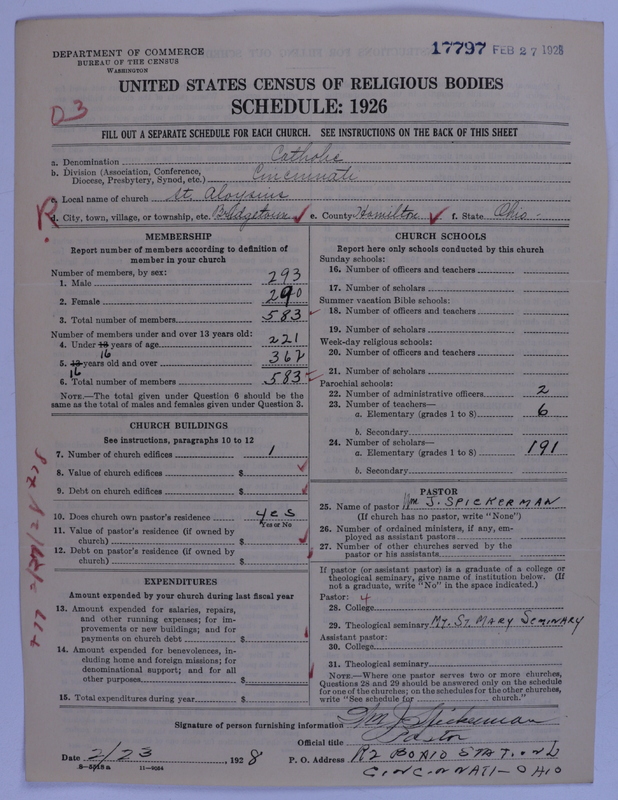 17797 FEB 27 1928
DEPARTMENT OF COMMERCE
BUREAU OF THE CENSUS
WASHINGTON
UNITED STATES CENSUS OF RELIGIOUS BODIES
SCHEDULE: 1926
D3
FILL OUT A SEPARATE SCHEDULE FOR EACH CHURCH. SEE INSTRUCTIONS ON THE BACK OF THIS SHEET
a. Denomination Catholic
b. Division (Association, Conference, Diocese, Presbytery, Synod, etc.) Cincinnati
c. Local name of church St. Aloysius
R
d. City, town, village, or township, etc. Bridgetown e. County Hamilton f. State Ohio
MEMBERSHIP
Report number of members according to definition of
member in your church
Number of members, by sex:
1. Male 293
2. Female 290
3. Total number of members 583
Number of members under and over 13 years old:
4. Under 13 years of age 221
16
5. 13 years old and over 362
16
6. Total number of members 583
NOTE.—The total given under Question 6 should be the
same as the total of males and females given under Question 3.
CHURCH BUILDINGS
See instructions, paragraphs 10 to 12
7. Number of church edifices 1
8. Value of church edifices $
9. Debt on church edifices $
10. Does church own pastor's residence yes
Yes or No
11. Value of pastor's residence (if owned by
church) $
12. Debt on pastor's residence (if owned by
church) $
EXPENDITURES
Amount expended by your church during last fiscal year
13. Amount expended for salaries, repairs,
and other running expenses; for im-
provements or new buildings; and for
payments on church debt $
14. Amount expended for benevolences, in-
cluding home and foreign missions; for
denominational support; and for all
other purposes $
15. Total expenditures during year $
CHURCH SCHOOLS
Report here only schools conducted by this church
Sunday schools:
16. Number of officers and teachers
17. Number of scholars
Summer vacation Bible schools:
18. Number of officers and teachers
19. Number of scholars
Week-day religious schools:
20. Number of officers and teachers
21. Number of scholars
Parochial schools:
22. Number of administrative officers 2
23. Number of teachers—
a. Elementary (grades 1 to 8) 6
b. Secondary
24. Number of scholars—
a. Elementary (grades 1 to 8) 191
b. Secondary
PASTOR
25. Name of pastor Wm J. SPICKERMAN
(If church has no pastor, write "None")
26. Number of ordained ministers, if any, em-
ployed as assistant pastors
27. Number of other churches served by the
pastor or his assistants
If pastor (or assistant pastor) is a graduate of a college or
theological seminary, give name of institution below. (If
not a graduate, write "No" in the space indicated.)
Pastor: 4
28. College
29. Theological seminary MT. ST. MARY SEMINARY
Assistant pastor:
30. College
31. Theological seminary
NOTE.—Where one pastor serves two or more churches,
Questions 28 and 29 should be answered only on the schedule
for one of the churches; on the schedules for the other churches,
write "See schedule for church."
Signature of person furnishing information Wm J. Spickerman
Official title Pastor
Date 2/23, 1928 P. O. Address R2 BOX10 STATION D
CINCINNATI-OHIO
8-5518a 11-9064